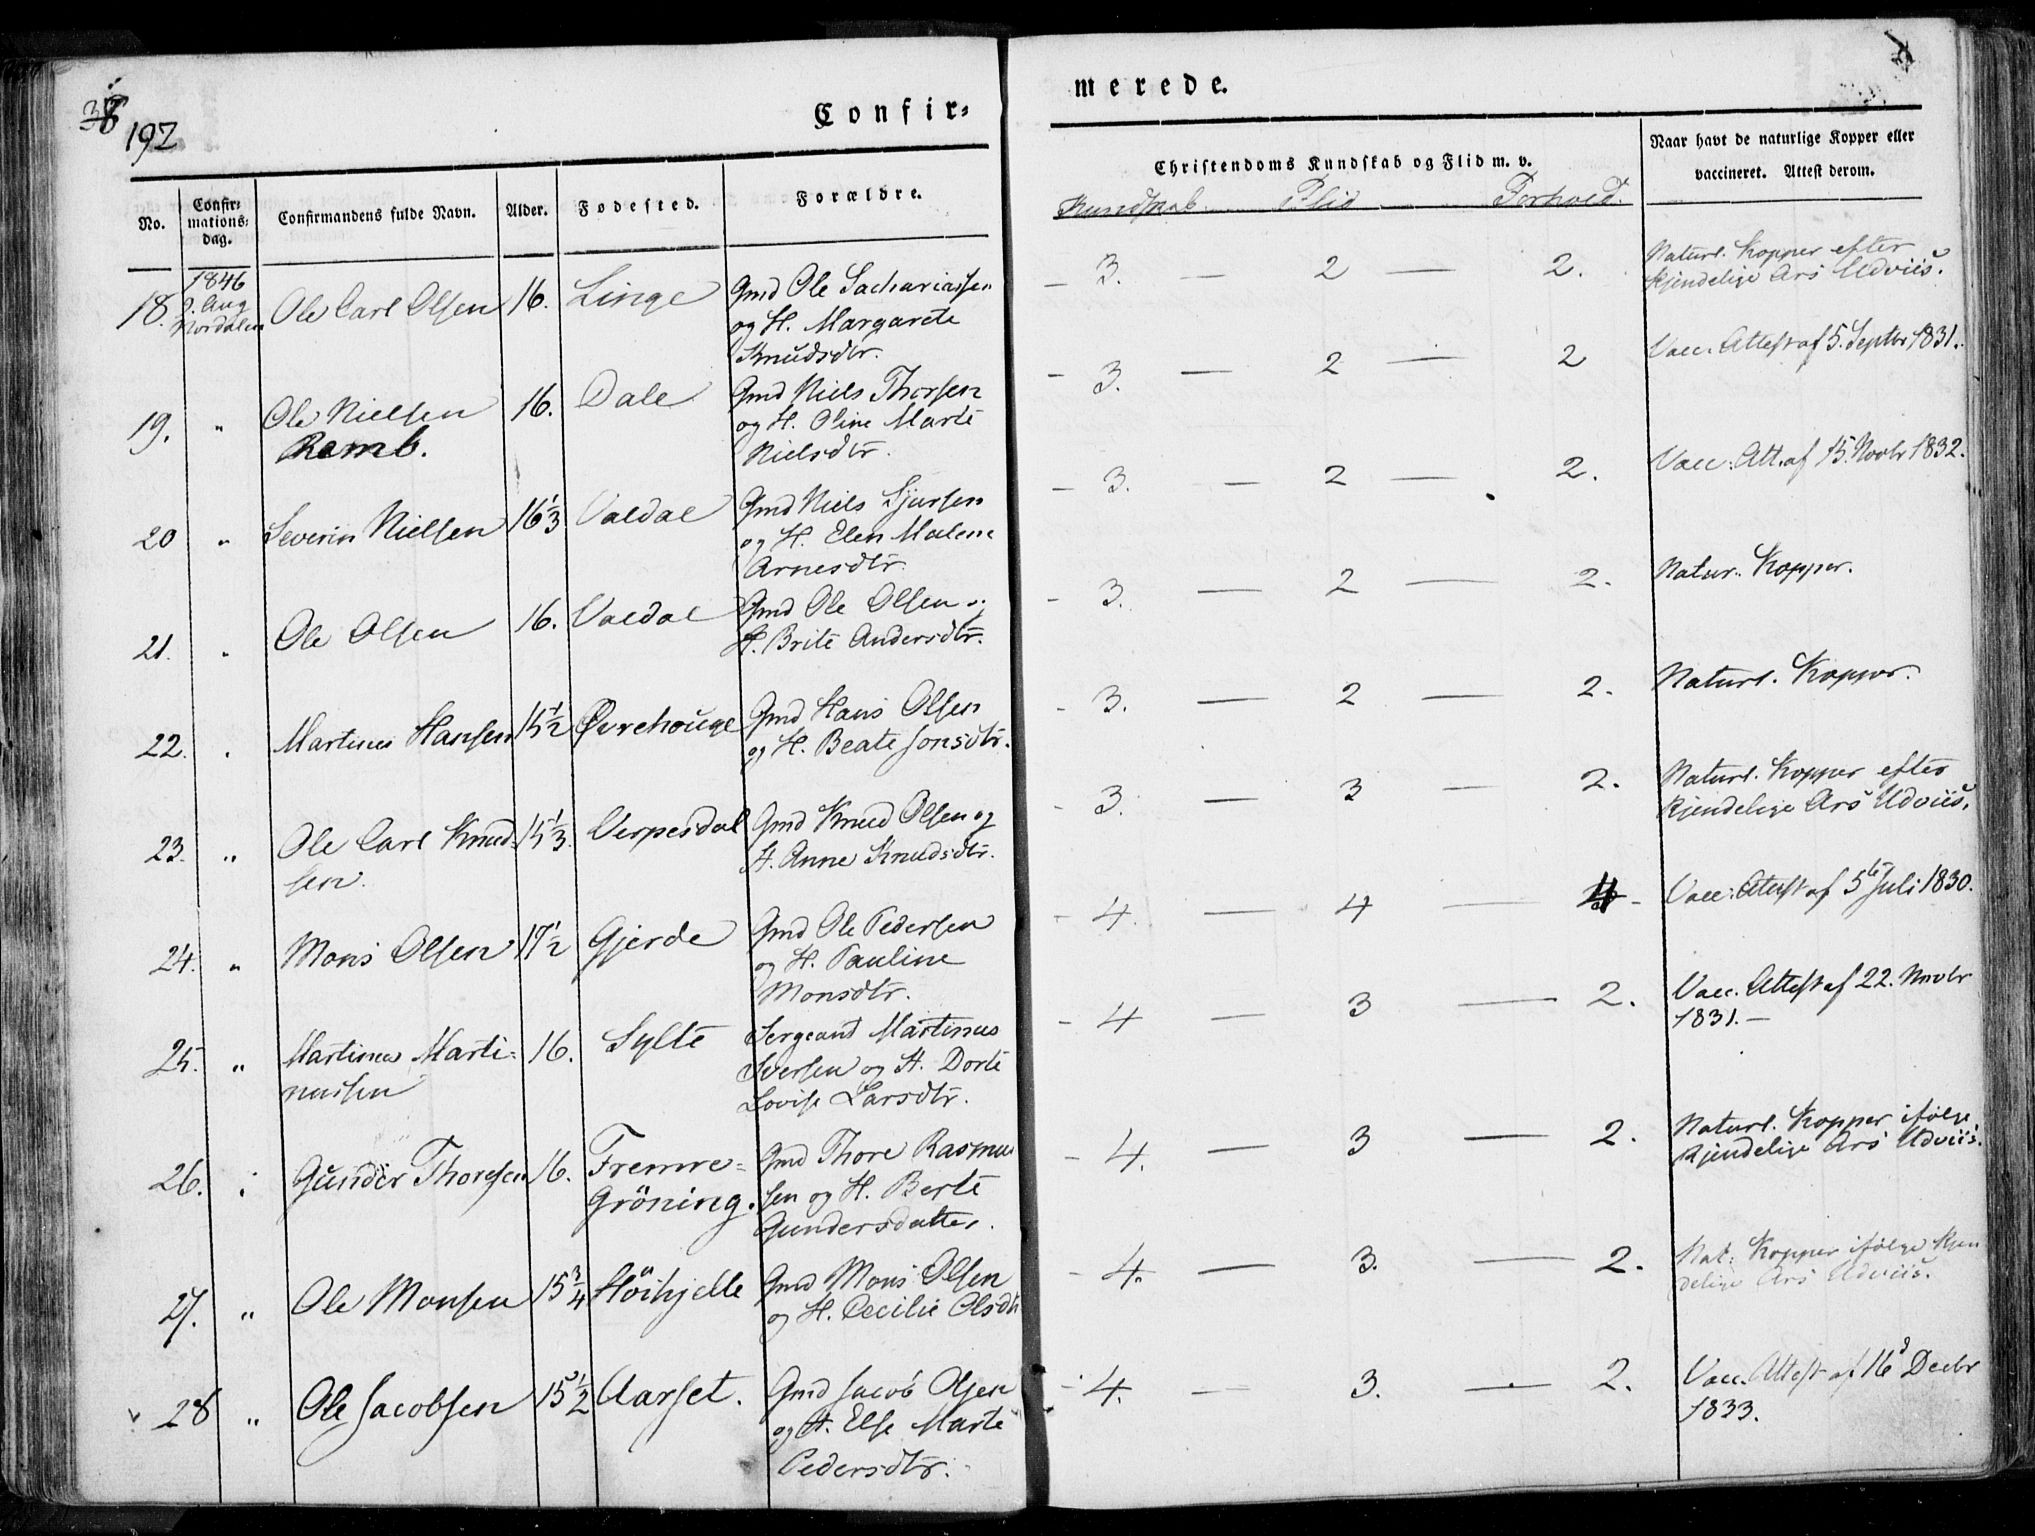 192
Confir=
No.
Confir=
mations=
dag.
Confirmandens fulde Navn.
Alder.
Fødested.
Forældre.
18.
1846
2. Aug
Nordalen
Ole Carl Olsen
16.
Linge
Gmd Ole Sachariassen
og H. Margarete
Knudsdtr.
19.
"
Ole Nielsen
Remb.
16.
Dale
Gmd Niels Thorsen
og H. Oline Marte
Nielsdtr.
20
"
Severin Nielsen
16 1/3
Valdal
Gmd Niels Sjursen
og H. Elen Malene
Arnesdtr.
21.
"
Ole Olsen
16.
Valdal
Gmd Ole Olsen og
H. Brite Andersdtr.
22.
"
Martinus Hansen
15 1/2
Øvrehouge
Gmd Hans Olsen
og H. Beate Jonsdtr.
23.
"
Ole Carl Knud-
sen.
15 1/3.
Verpesdal
Gmd Knud Olsen og
H. Anne Knudsdtr.
24.
"
Mons Olsen
17 1/2
Gjerde
Gmd Ole Pedersen
og H. Pauline
Monsdtr.
25.
"
Martinus Marti-
nussen
16.
Sylte
Sergeant Martinus
Iversen og H. Dorte
Lovise Larsdtr.
26.
"
Gunder Thoresen
16.
Fremre=
Gröning.
Gmd Thore Rasmus
sen og H. Berte
Gundersdatter.
27.
"
Ole Monsen
15 3/4
Höihjelle
Gmd Mons Olsen
og H. Cecilie Olsdtr
28
"
Ole Jacobsen
15 1/2
Aarset.
Gmd Jacob Olsen
og H. Else Marte
Pedersdtr.
merede.
Christendoms Kundskab og Flid m. v.
Kundskab Flid Forhold.
Naar havt de naturlige Kopper eller
vaccineret. Attest derom.
3. — 2 — 2.
Naturl. Kopper efter
kjendelige Ars Udviis.
3. — 2 — 2
Vacc. Attest af 5. Septbr 1831.
3. — 2 — 2.
Vacc: Att. af 15. Novbr 1832.
3. — 2 — 2.
Natur. Kopper.
3. — 2 — 2.
Naturl. Kopper.
3. — 3 — 2.
Naturl. Kopper efter
kjendelige Ars Udviis.
4. — 4 — 4
Vacc: Attest af 5te Juli 1830.
4 — 3 — 2.
Vacc. Attest af 22. Novbr
1831. —
4. — 3 — 2.
Naturl. Kopper ifølge
kjendelige Ars Udviis.
4. — 3. — 2.
Nat: Kopper ifølge kjen
delige Ars Udviis.
4. — 3. — 2.
Vacc. Attest af 16d Decbr
1833.